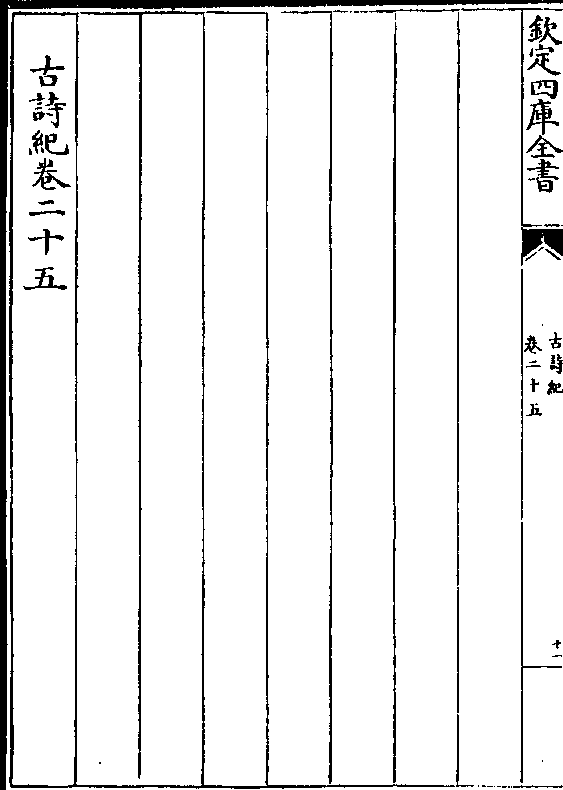 欽定四庫全書
古詩紀
卷二十五
十一
古詩紀卷二十五